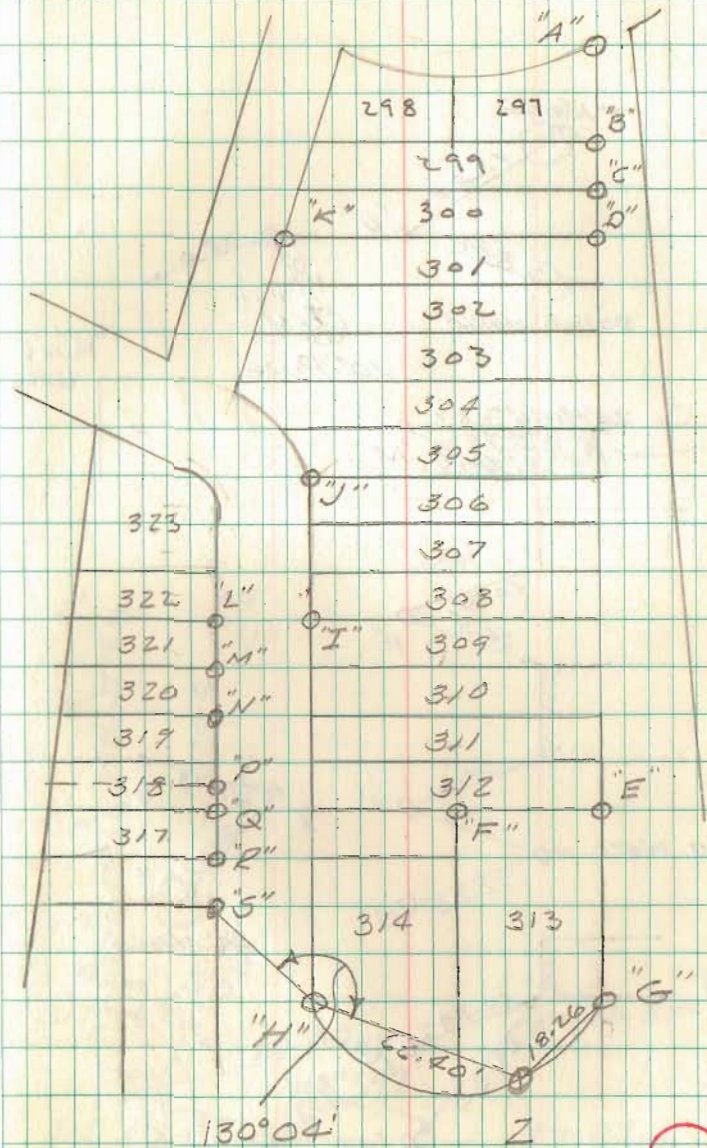 "A"
298 297
"B"
299
"C"
"K"
300
"D"
301
302
303
304
305
"J"
306
323
307
322 "L"
308
"I"
321
309
"M"
320
310
"N"
319
311
"P"
318
312
"E"
"Q"
"F"
317
"R"
"S"
314
313
"H"
"G"
18.26
130°04'
Z